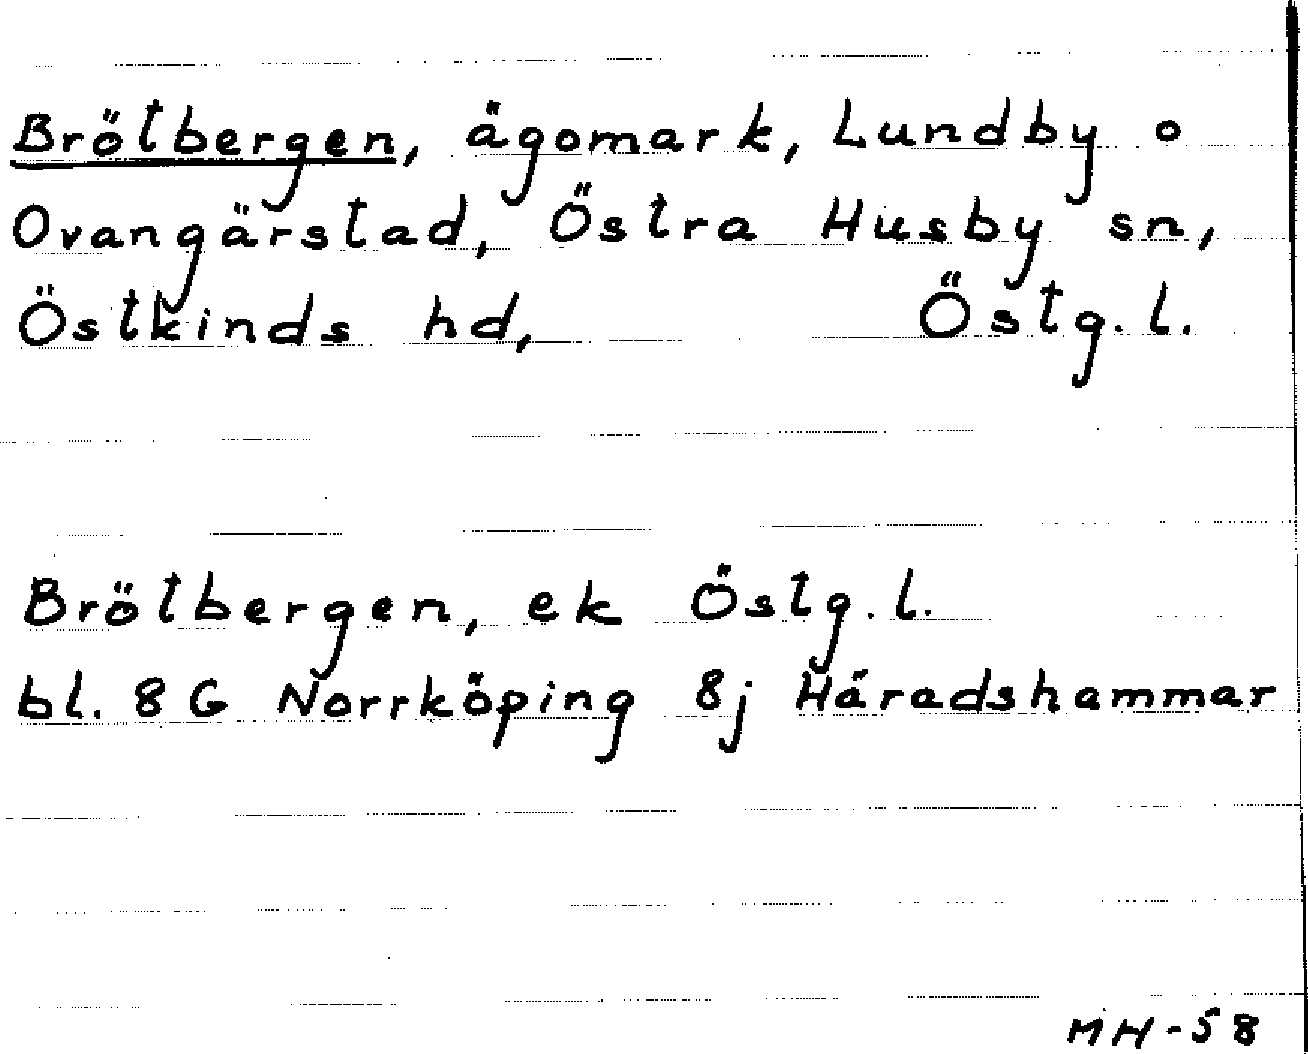 Brötbergen, ägomark, Lundby o
Ovangärstad, Östra Husby sn,
Östkinds hd, Östg. l.
Brötbergen, ek Östg. l.
bl. 8 G Norrköping 8j Häradshammar
MH-58